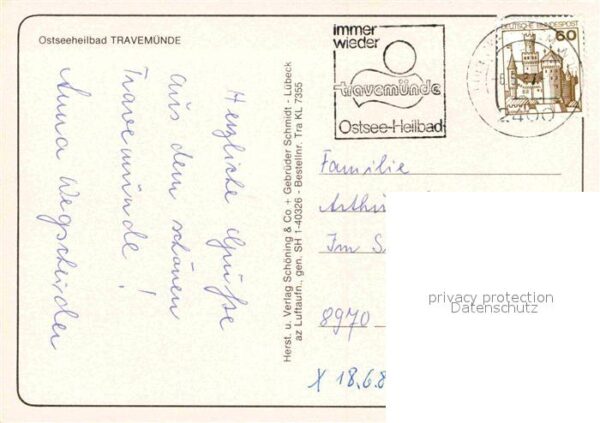 Ostseeheilbad TRAVEMÜNDE
Herzliche Grüße
aus dem schönen
Travemünde!
Anna
Herst. u. Verlag Schöning & Co + Gebrüder Schmidt - Lübeck
az Luftaufn., gen. SH 1-40326 - Bestellnr. Tra KL 7355
immer
wieder
travemünde
Ostsee-Heilbad
DEUTSCHE BUNDESPOST
60
2400
Familie
Im
8970
X 18.6.8
privacy protection
Datenschutz